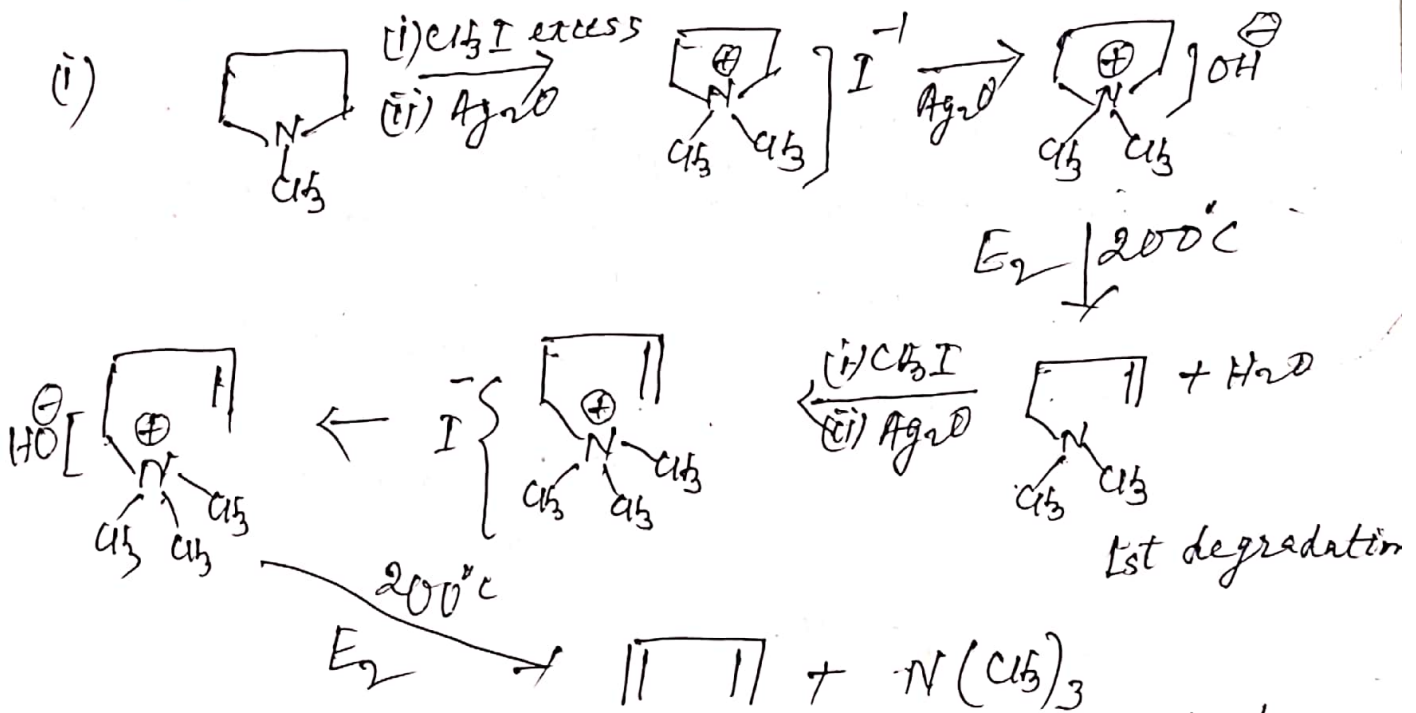 (i) N CH3 (i) CH3I excess (ii) Ag2O ⊕ N CH3 CH3 ] I⁻¹ Ag2O ⊕ N CH3 CH3 ] OH⊖
E2 200°C
⊖HO [ ⊕ N CH3 CH3 CH3 ← I⁻ { ⊕ N CH3 CH3 CH3 (i) CH3I (ii) Ag2O N CH3 CH3 + H2O
1st degradation
200°C
E2
+ N(CH3)3